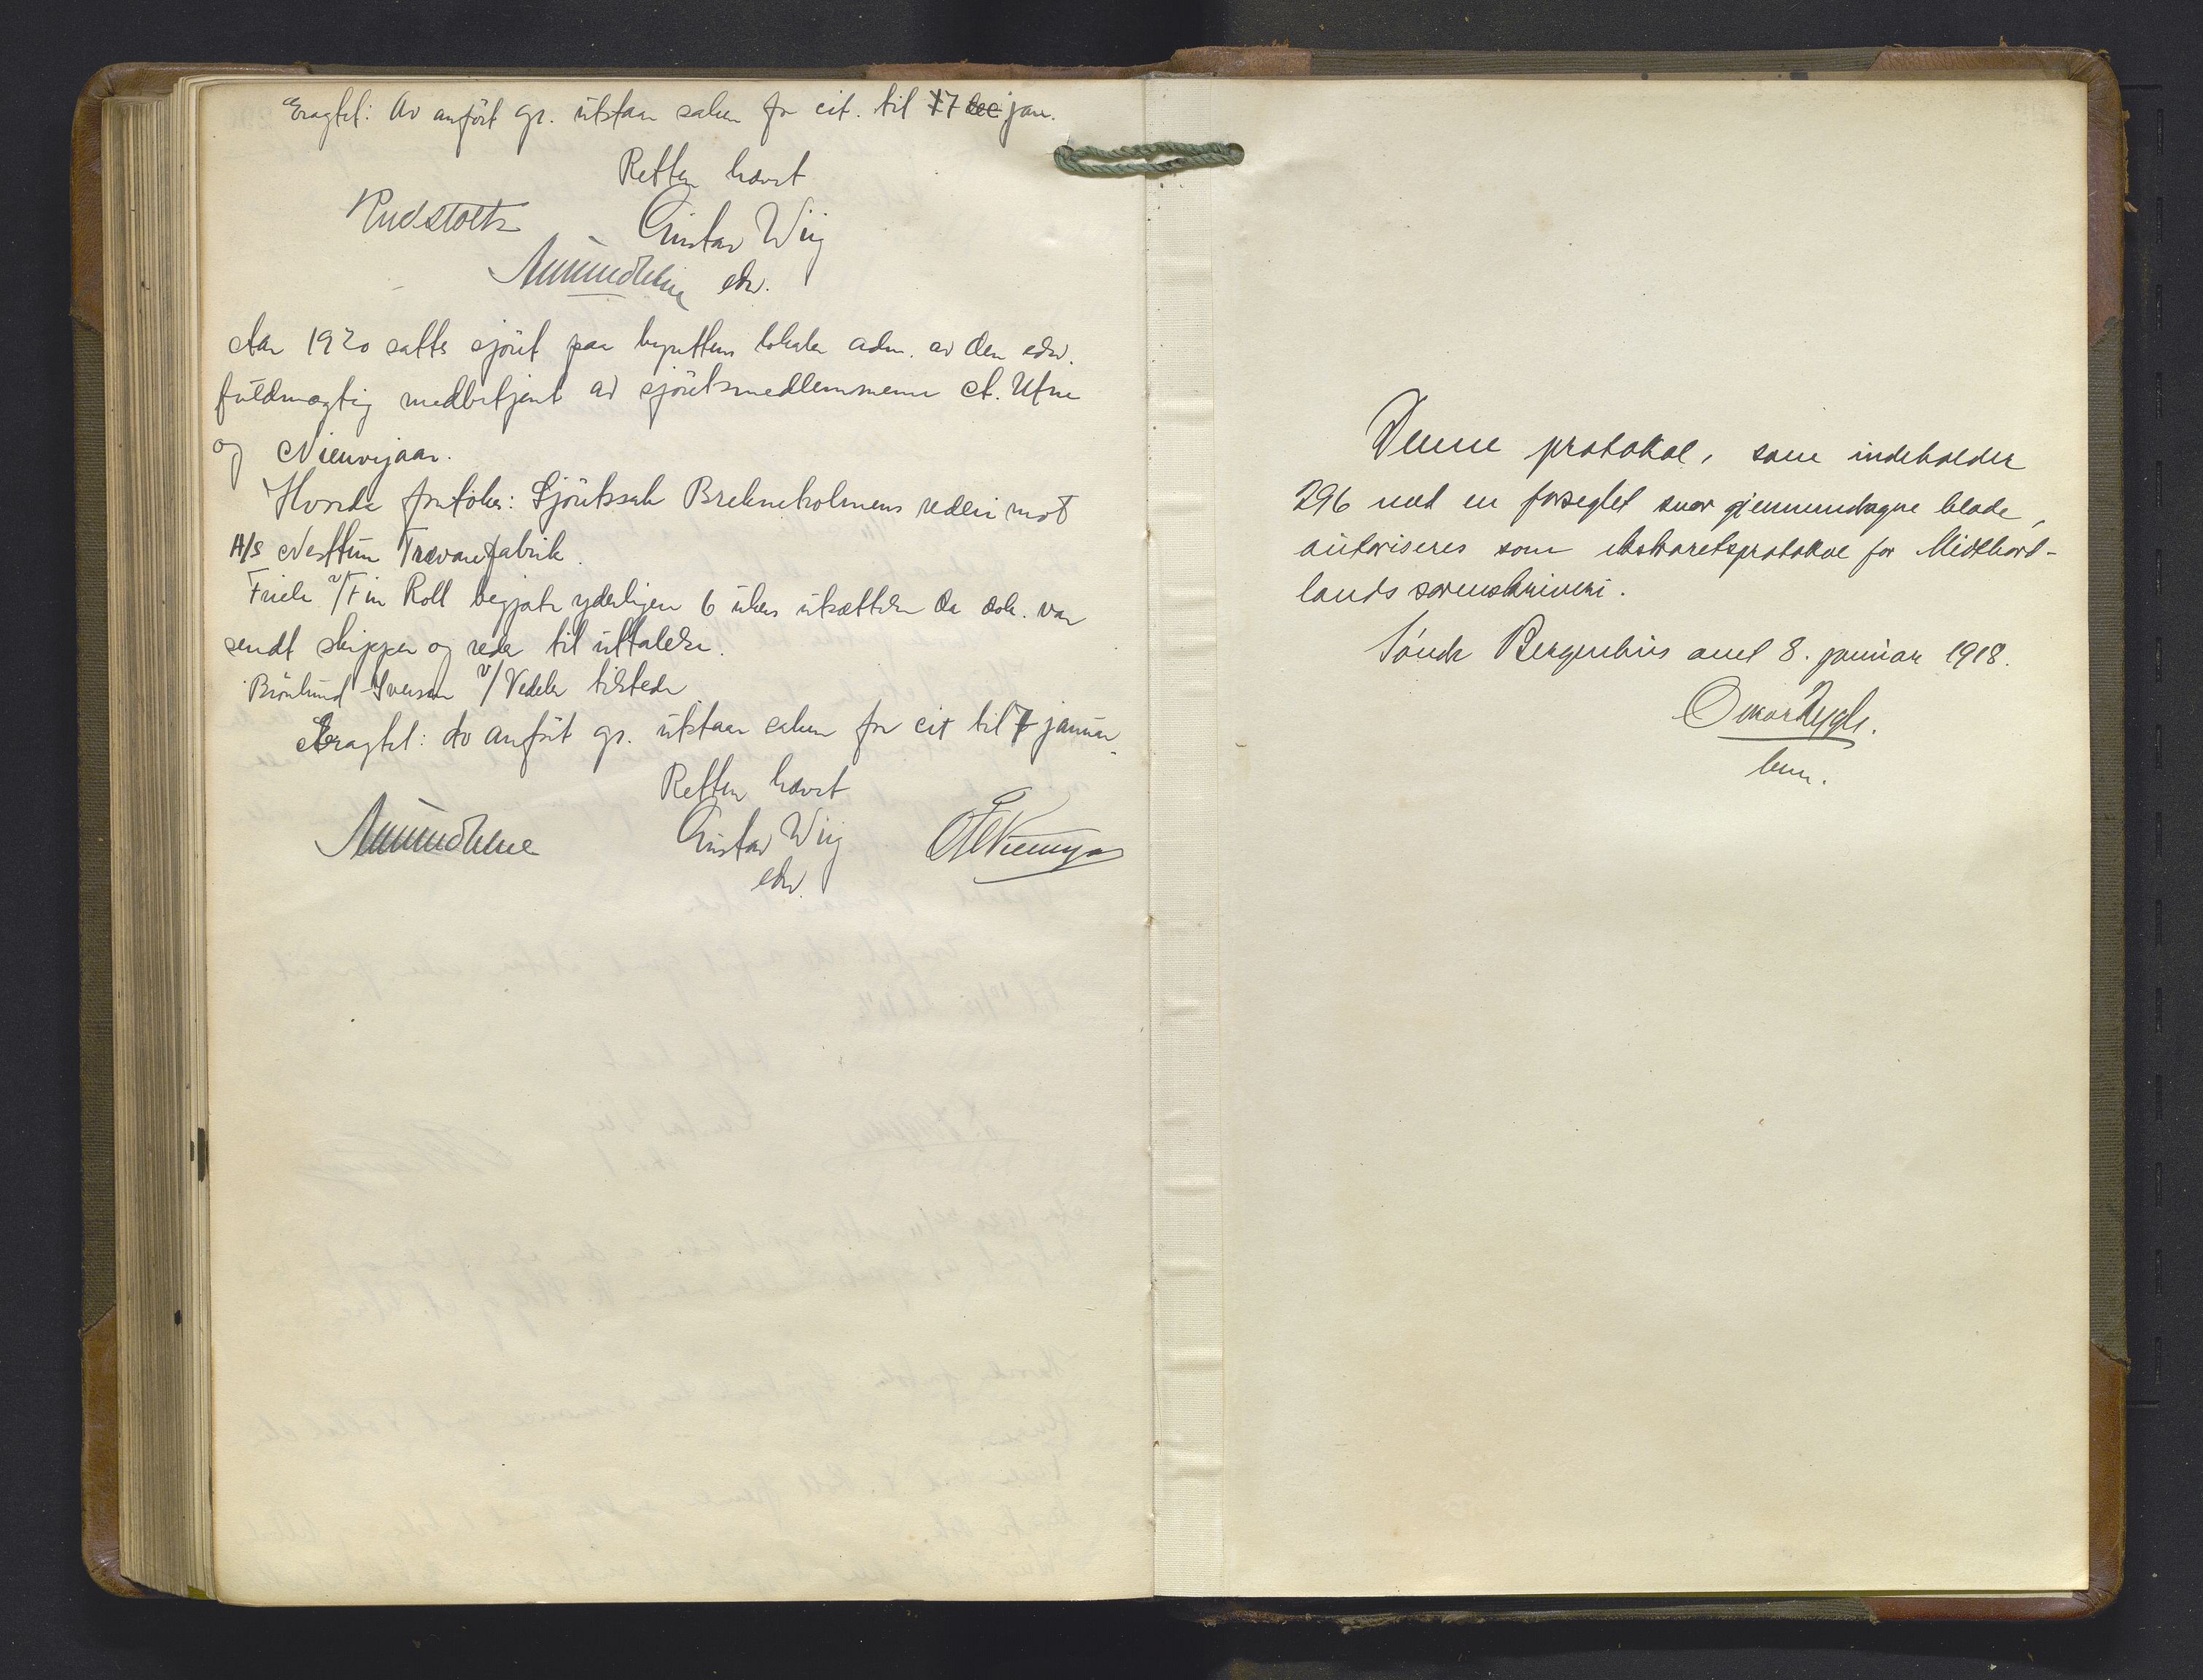 Eragtet: Av anført gr. utstaar saken fr cit. til 17 dec jan.
Retten hævet
Rudstoltz Gustav Wiig
Amund Utne edsv.
Aar 1920 sattes sjøret paa byrettens lokale adm. av den edsv.
fuldmægtig medbetjent av sjøretsmedlemmene A. Utne
og Nieuwejaar.
Hvorda foretokes: Sjøretssak Brekneholmens rederi mot
A/S Nesttun Trævarefabrik.
Friele v/Fin Roll begjærte yderligere 6 ukers utsættelse da dok. var
sendt skipper og reder til uttalelse.
Brønlund Iversen v/Vedeler tilstede
Eragtet: Av anført gr. utstaar saken fr cit til 7 januar
Retten hævet
Amund Utne Gustav Wiig Nieuwejaar
edsv.
Denne protokol, som indeholder
296 med en forseglet snor gjennemdragne blade,
autoriseres som ekstraretsprotokol for Midthord-
lands sorenskriveri.
Søndr Bergenhus amt 8. januar 1918.